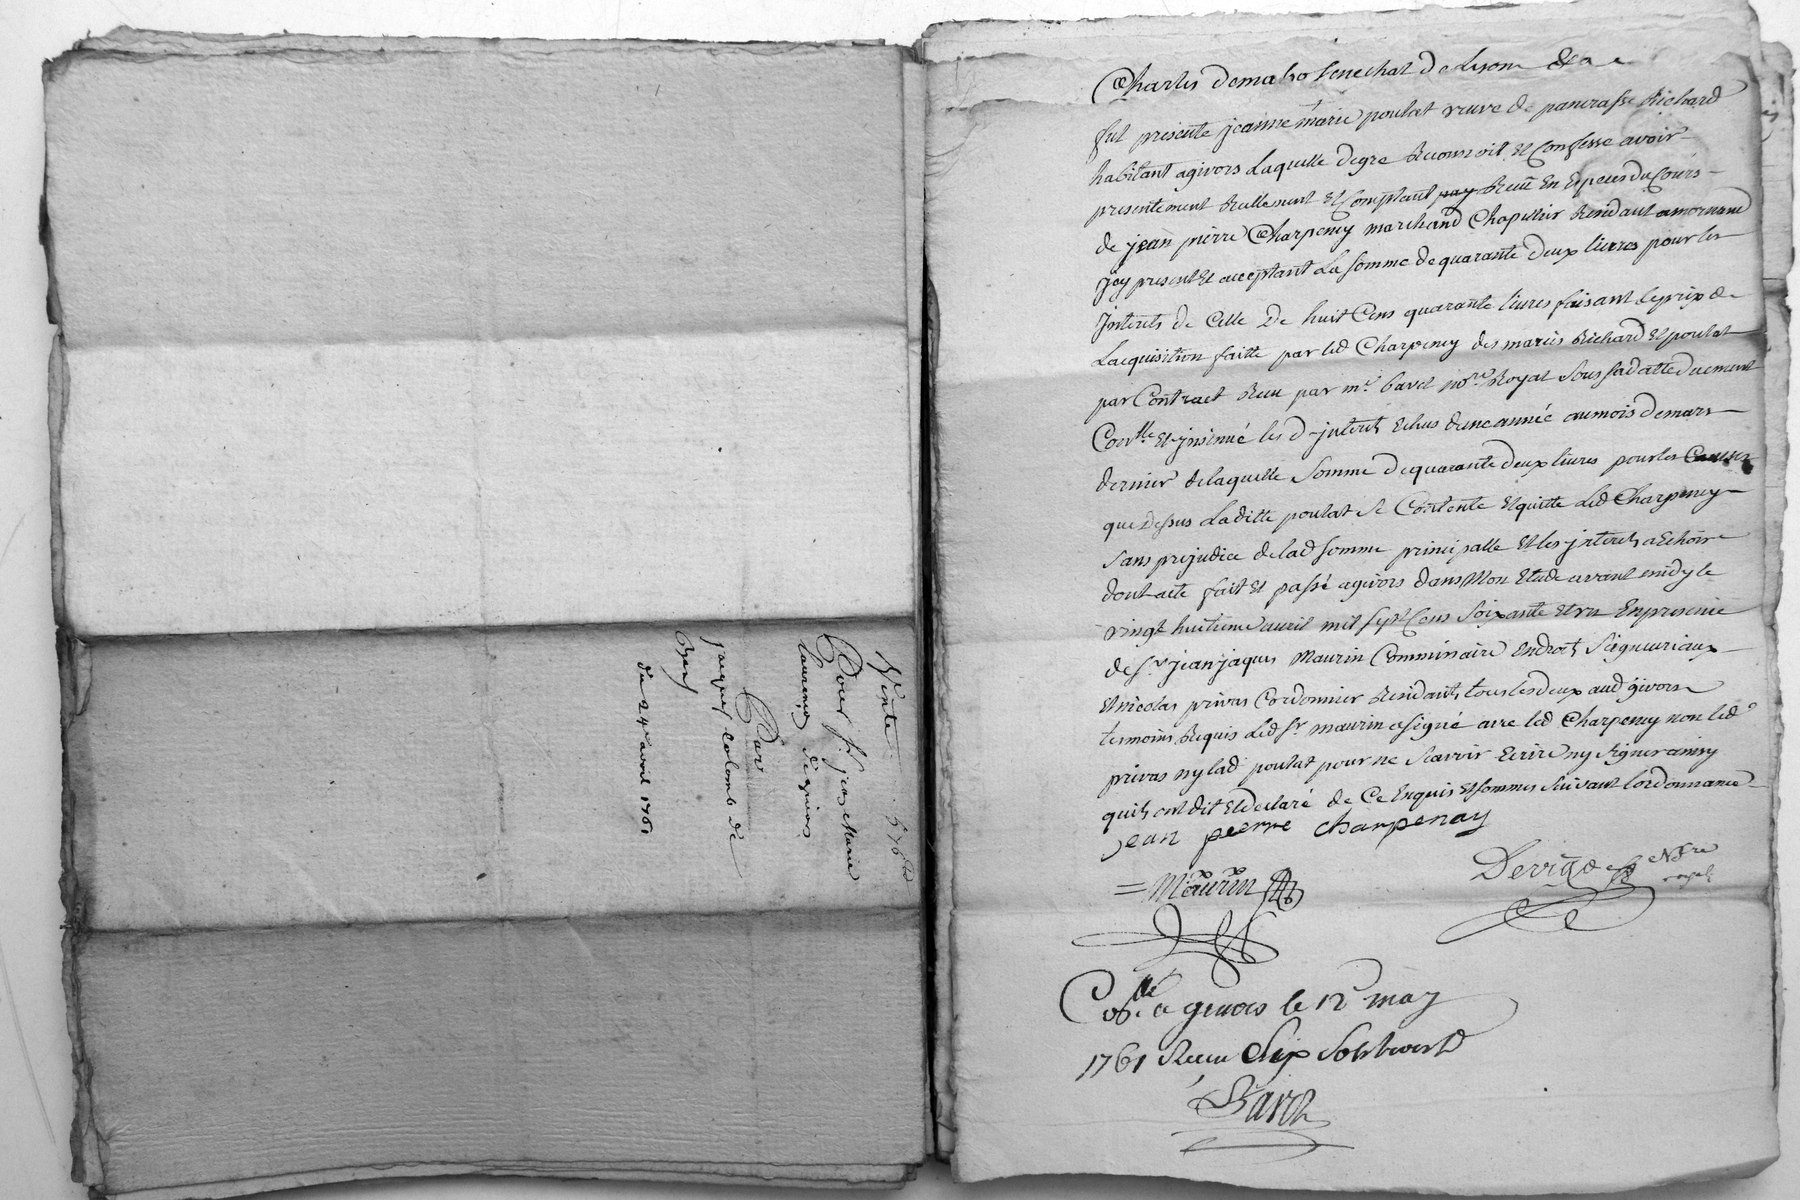 Vente 576lt
Pour sr jean Marie
laurenson de givors
Par
jacques Colomb de
du 24e avril 1761
Charles Demasso Senechal De Lyon &a
fut presente jeanne marie poulat veuve de pancrasse Richard
habitant a givors Laquelle de gré Reconnoit Et Confesse avoir
presentement Reellement Et Comptant Receu En Especes du Cours
de jean pierre Charpenay marchand Chapellier Residant a mornand
jcy present Et acceptant La somme de quarante Deux livres pour les
jnterets de Celle De huit Cens quarante livres faisant le prix de
Lacquisition faitte par led Charpenay des mariés Richard Et poulat
par Contract Receu par me bavet nore Royal sous sa datte Duement
Conllé Et jnsinué les d jnterets Echus dune année au mois de mars
dernier de laquelle somme de quarante deux livres pour les Causes
que Dessus Laditte poulat se Contente Et quitte Led Charpenay
sans prejudice de lad somme principalle Et les jnterets a Echoir
dont acte fait Et passé a givors dans Mon Etude avant midy le
vingt huitieme avril mil sept Cens soixante Et un En presence
de sr jean jaques Maurin Commissaire En droits seigneuriaux
Et nicolas privas Cordonnier Residants tous les deux aud givors
temoins Requis Led sr maurin a signé avec led Charpenay non led
privas ny lad poulat pour ne scavoir Ecrire ny signer ainsy
quils ont dit Et declaré de Ce Enquis Et sommés suivant l'ordonnance
jean pierre charpenay
= Maurin
Devigne
Nre
royal
Conlle a givors le 12e may
1761 Receu Six sols
Bavet